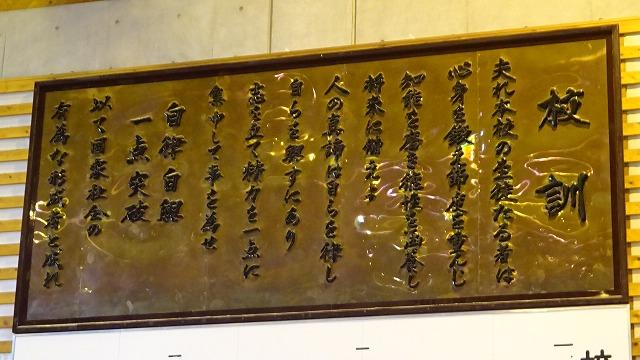 校訓
夫れ本校の生徒たる者は
心身を鍛え節度を重んじ
知能を磨き徳性を涵養し
将来に備えよ
人の真諦は自らを律し
自らを興すにあり
志を立て精力を一点に
集中して事を為せ
自律自興
一点突破
以て国家社会の
有為な形成者と成れ
校
一
一
一